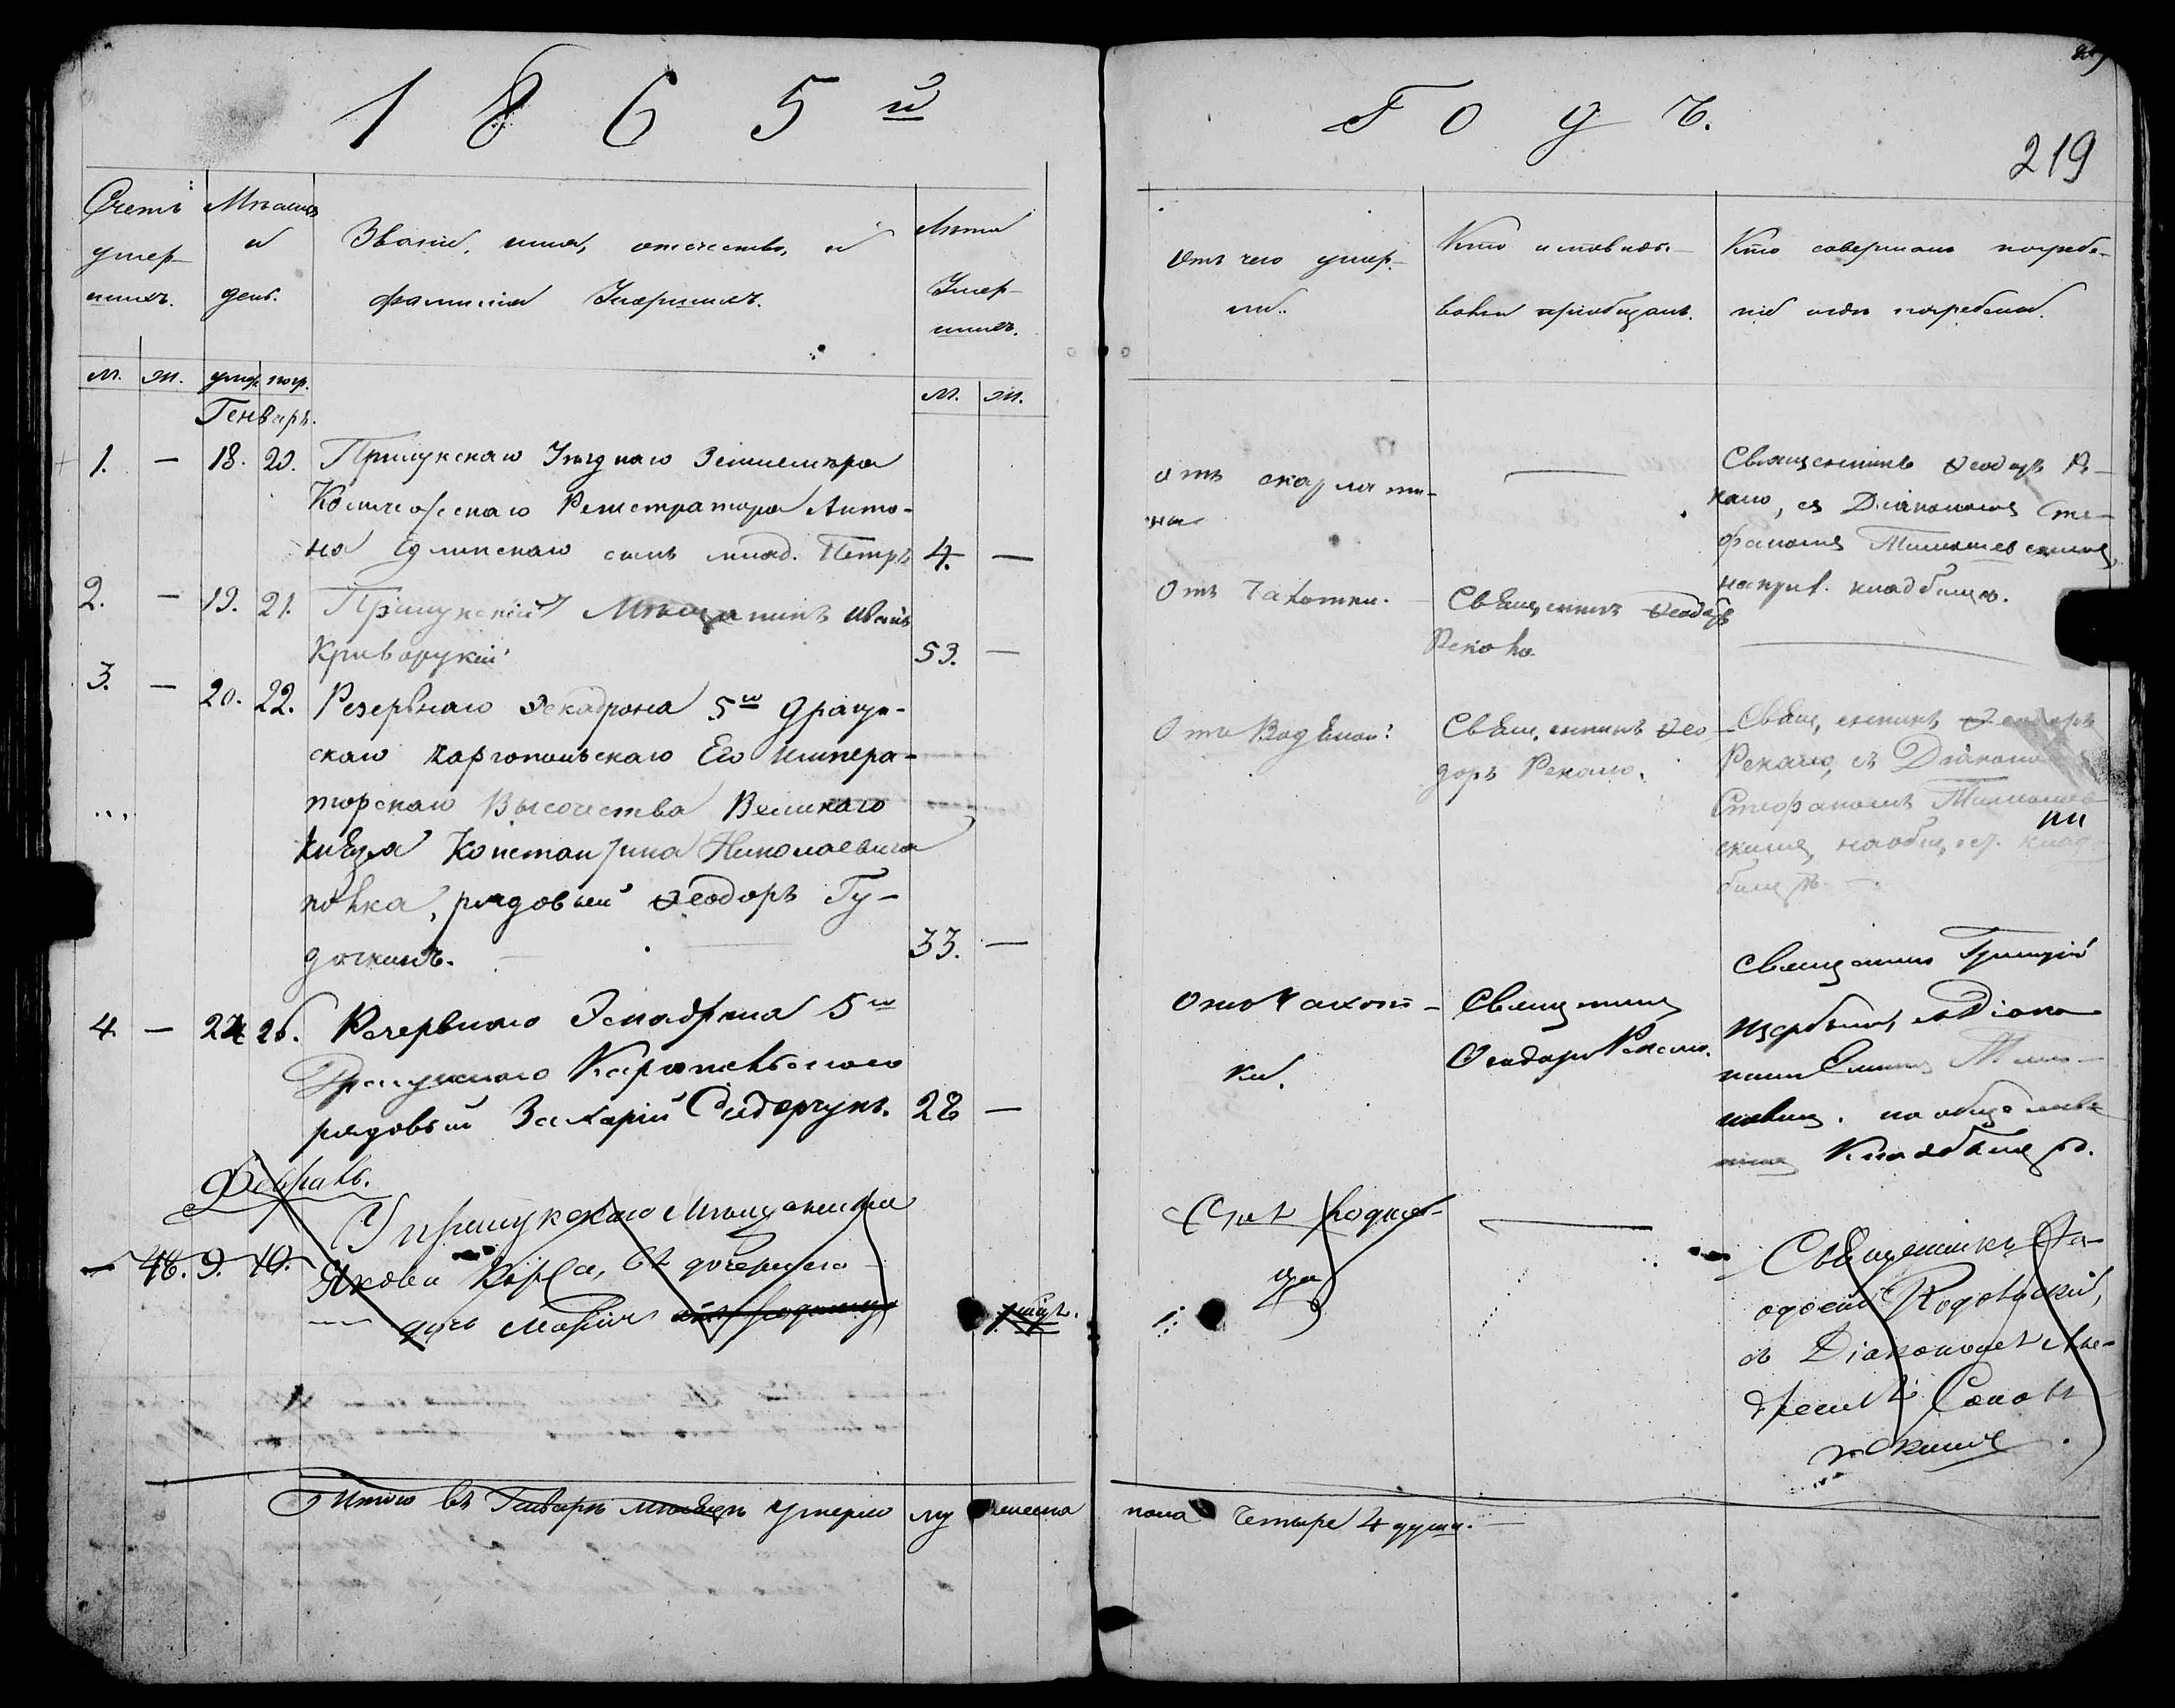 1865й
Годъ.
219
Счетъ
умер-
шихъ.
Мѣсяцъ
и
день.
Званіе, имя, отечество, и
фамилія Умершихъ.
Лѣта
Умер-
шихъ.
Отъ чего умер-
ли.
Кто исповѣды-
валъ и пріобщалъ.
Кто совершалъ погребе-
ніе и гдѣ погребены.
м. ж. умер. погр.
м. ж.
Генварь.
1. — 18. 20. Прилукскаго Уѣзднаго Землемѣра
Коллежскаго Регистратора Анто-
на сынъ млад. Петръ 4. —
отъ скарлати-
ны
—
Священникъ Ѳеодоръ Ре-
кало, съ Діакономъ Сте-
фаномъ
на прих. кладбищѣ.
2. — 19. 21. Прилукскій Мѣщанинъ Иванъ
Криворукій 53. —
Отъ Чахотки.
Священникъ Ѳеодоръ
Рекало.
3. — 20. 22. Резервнаго Эскадрона 5го Драгун-
скаго Каргопольскаго Его Импера-
торскаго Высочества Великаго
Князя Константина Николаевича
полка, рядовый Ѳеодоръ Гу-
дочкинъ. 33. —
Отъ Водяной.
Священникъ Ѳео-
доръ Рекало.
Священникъ Ѳеодоръ
Рекало, съ Діакономъ
Стефаномъ
кладбищѣ.
4. — 24 26. Резервнаго Эскадрона 5го
Драгунскаго Каргопольскаго
рядовый Захарій Сидорчукъ. 28 —
Отъ Чахот-
ки.
Священникъ
Ѳеодоръ Рекало.
Священникъ Григорій
Щербина, съ Діако-
номъ
Кладбищѣ.
Февраль.
— 9. 10. Прилукскаго Мѣщанина
Якова
дочь Марія
Отъ родим-
ца
—
Священникъ Ѳе-
одосій
съ Діакономъ Ан-
дреемъ
Итого въ Генварѣ мѣсяцѣ умерло мужеска
пола четыре 4 души. —